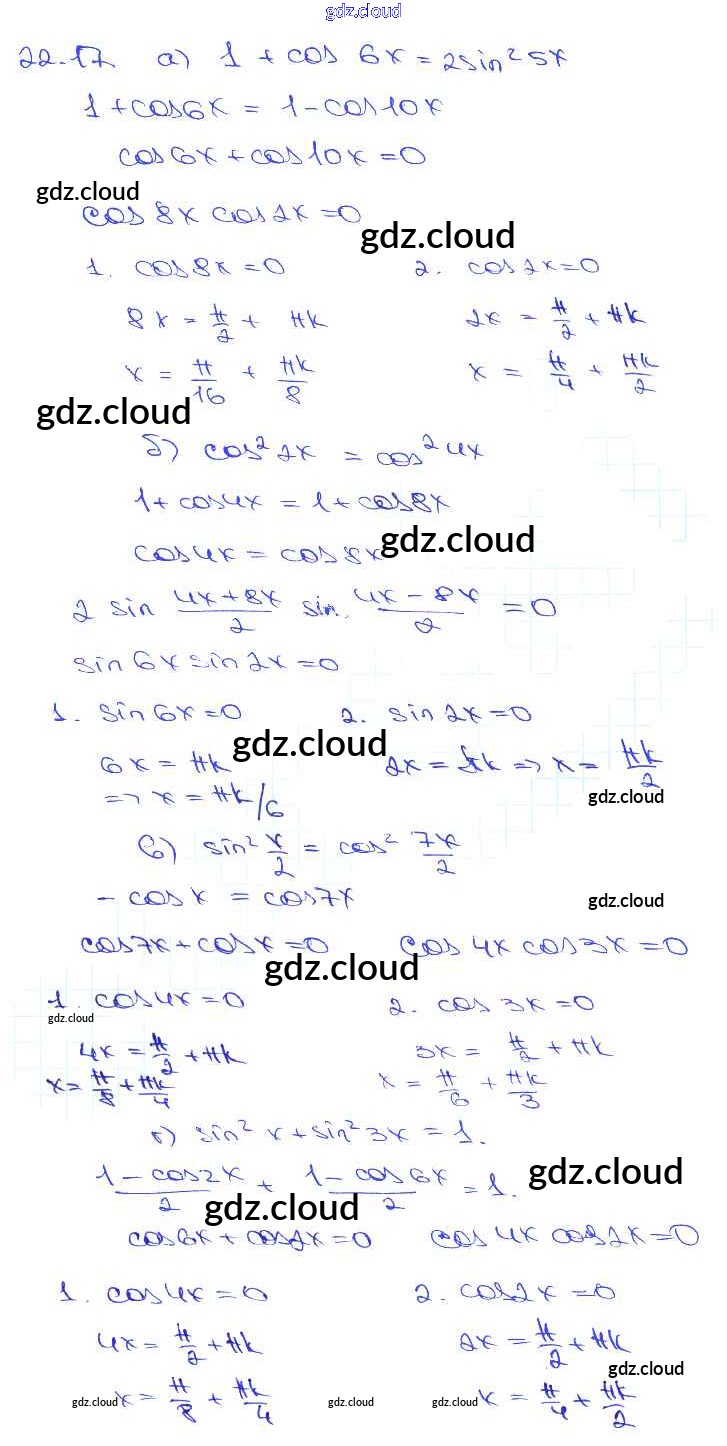 gdz.cloud
22.17 а) 1 + cos 6x = 2sin² 5x
1 + cos6x = 1 - cos10x
cos6x + cos10x = 0
gdz.cloud
cos 8x cos2x = 0
gdz.cloud
1. cos8x = 0 2. cos2x = 0
8x = π/2 + πk 2x = π/2 + πk
x = π/16 + πk/8 x = π/4 + πk/2
gdz.cloud
б) cos² 2x = cos² 4x
1 + cos4x = 1 + cos8x
cos4x = cos8x gdz.cloud
2 sin (4x+8x)/2 sin. (4x-8x)/2 = 0
sin6x sin2x = 0
1. sin6x = 0 2. sin2x = 0
gdz.cloud
6x = πk 2x = πk => x = πk/2
=> x = πk/6 gdz.cloud
в) sin² x/2 = cos² 7x/2
- cos x = cos7x gdz.cloud
cos7x + cosx = 0 cos 4x cos3x = 0
gdz.cloud
1. cos4x = 0 2. cos 3x = 0
gdz.cloud
4x = π/2 + πk 3x = π/2 + πk
x = π/8 + πk/4 x = π/6 + πk/3
г) sin² x + sin² 3x = 1.
(1 - cos2x)/2 + (1 - cos6x)/2 = 1. gdz.cloud
gdz.cloud
cos6x + cos2x = 0 cos 4x cos2x = 0
1. cos4x = 0 2. cos2x = 0
4x = π/2 + πk 2x = π/2 + πk
gdz.cloud
gdz.cloud x = π/8 + πk/4 gdz.cloud gdz.cloud x = π/4 + πk/2